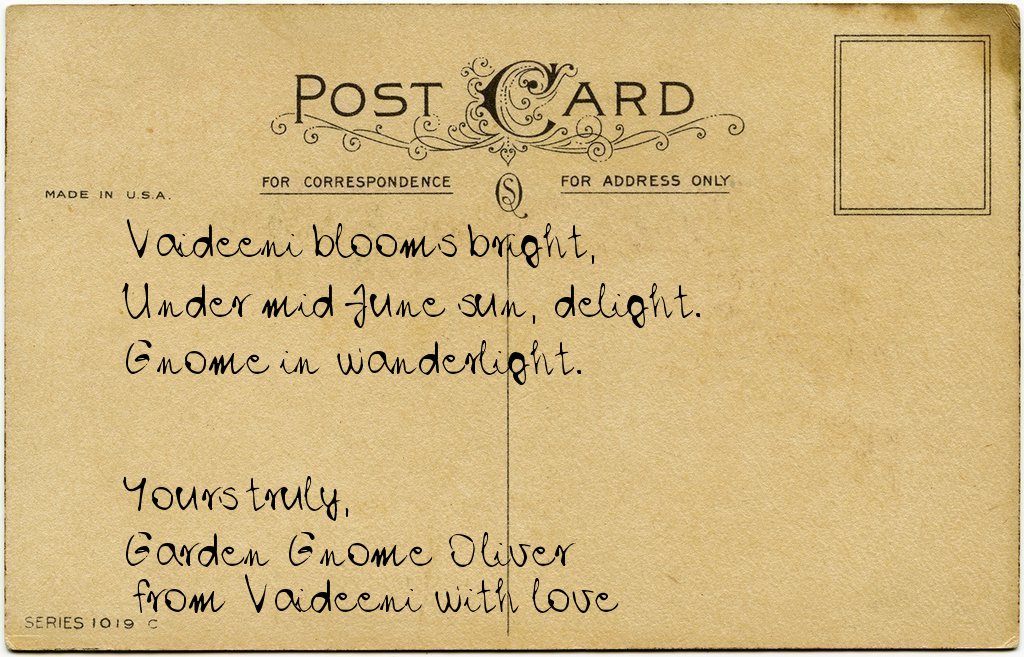 POST CARD
FOR CORRESPONDENCE
FOR ADDRESS ONLY
MADE IN U.S.A.
Vaideeni blooms bright,
Under mid-June sun, delight.
Gnome in wanderlight.
Yours truly,
Garden Gnome Oliver
from Vaideeni with love
SERIES 1019 C